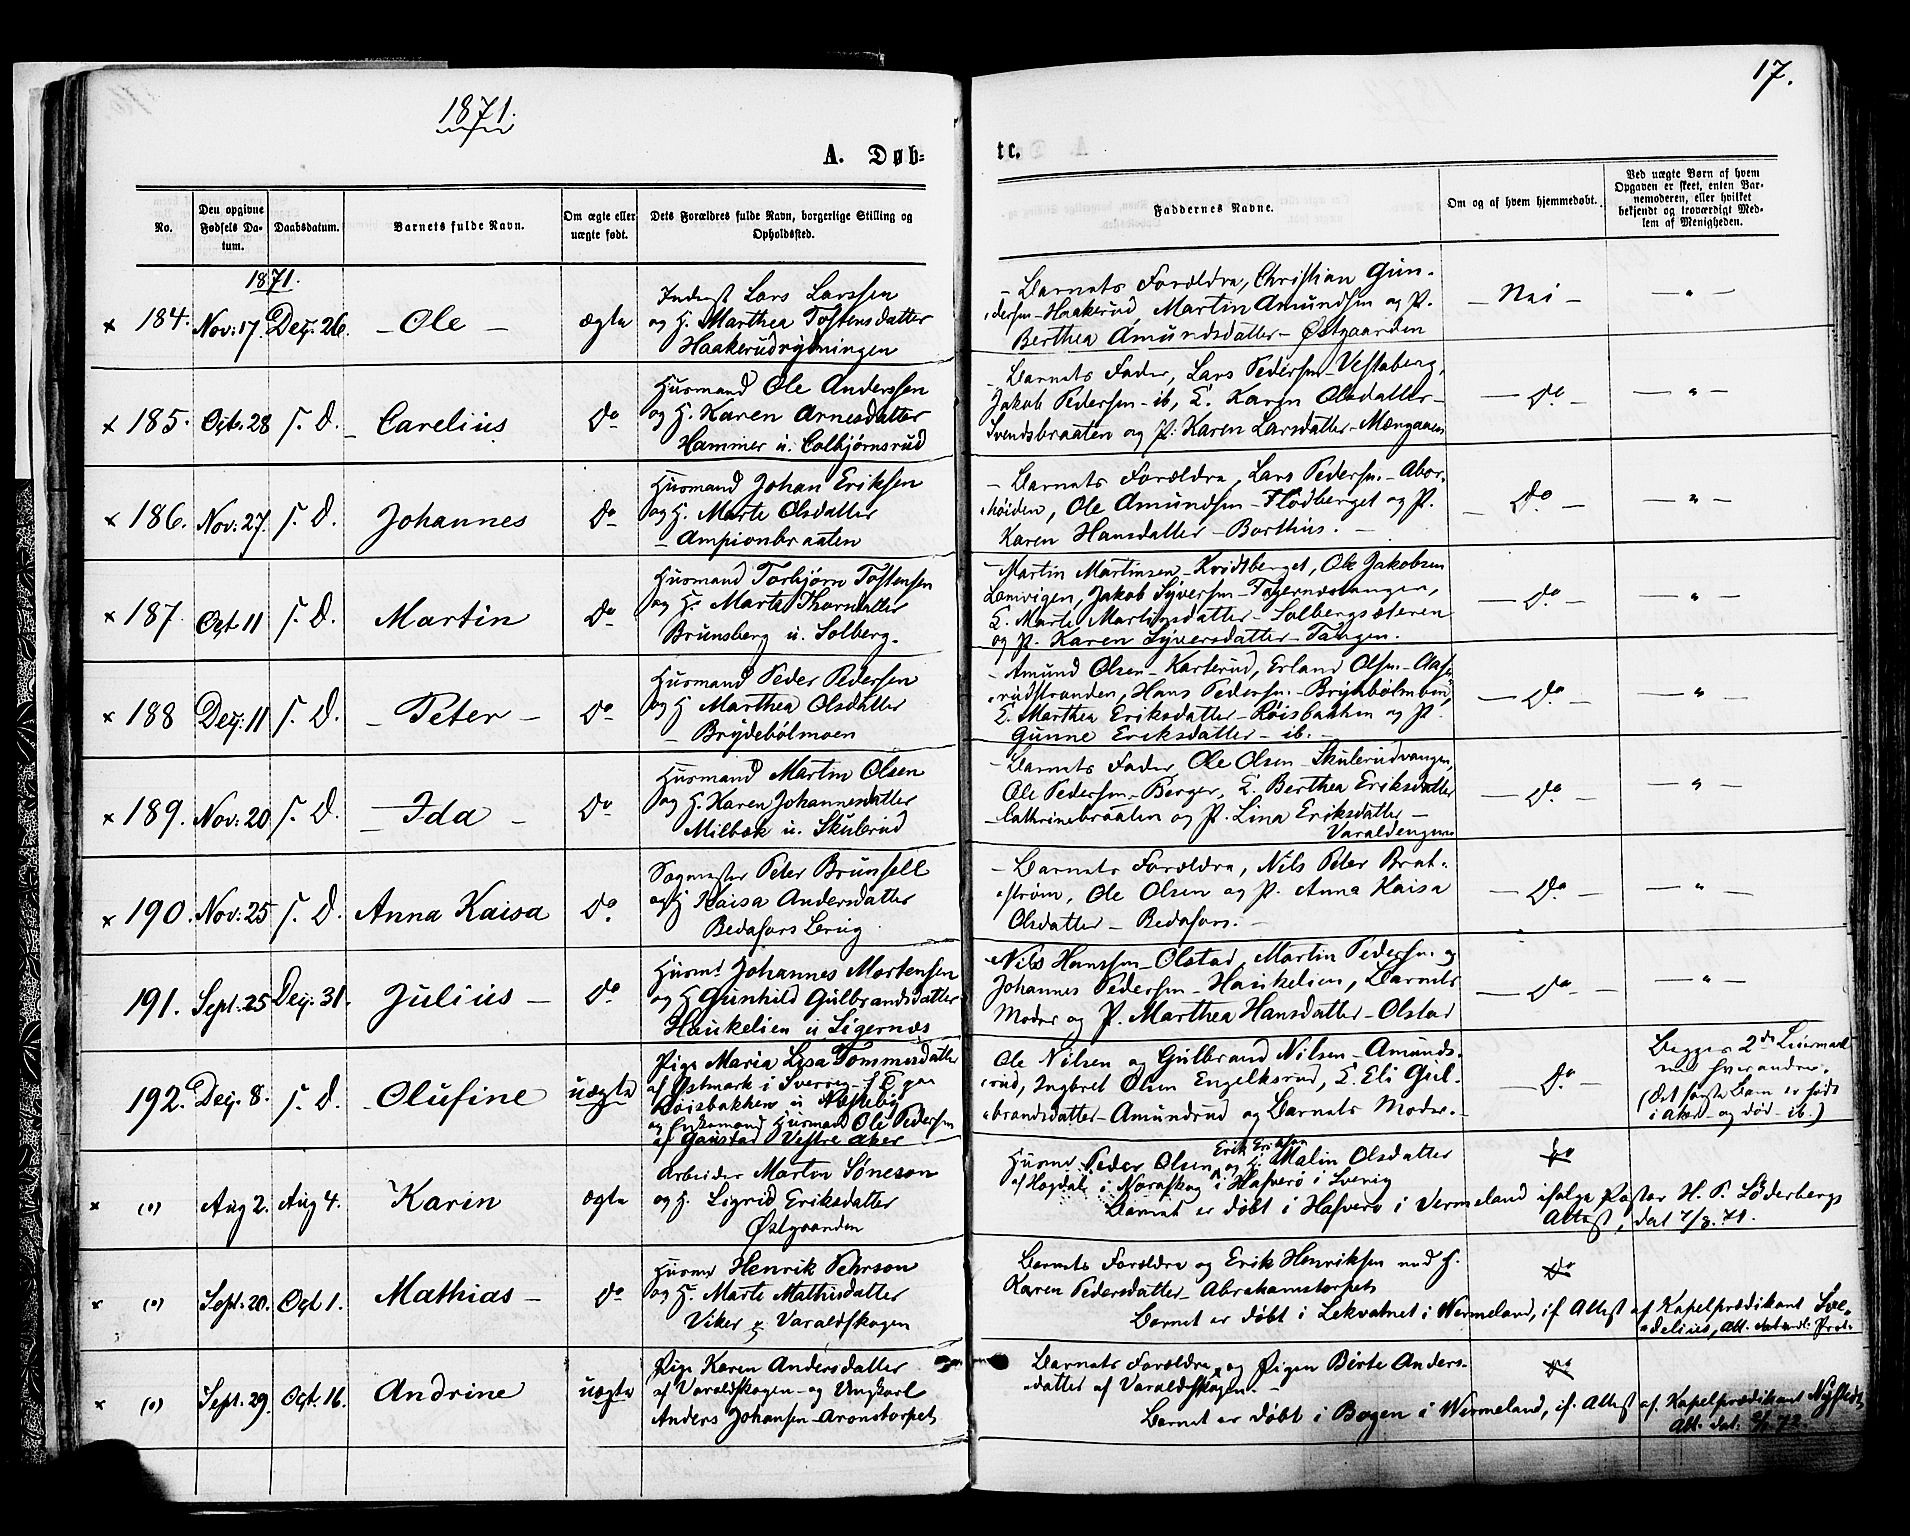 1871.
17.
A. Døb-
te.
No.
Den opgivne Fødsels Da-tum.
Daabsdatum.
Barnets fulde Navn.
Om ægte eller uægte født.
Dets Forældres fulde Navn, borgerlige Stilling og Opholdssted.
Faddernes Navne.
Om og af hvem hjemmedøbt.
Ved uægte Børn af hvem Opgaven er skeet, enten Bar-nemoderen, eller hvilket bekjendt og troværdigt Med-lem af Menigheden.
1871.
× 184. Nov: 17. Dez. 26. – Ole – ægte
Inderst Lars Larssen
og H. Marthea Tostensdatter
Haakerudrydningen
– Barnets Forældre, Christian Gun-
dersen Haakerud, Martin Amundsen og P.
Berthea Amundsdatter – Østgaarden
– Nei – – " –
× 185. Oct. 28 s. D. – Carelius do
Husmand Ole Anderssen
og H. Karen Arnesdatter
Hammer u. Colbjørnsrud
– Barnets Fader, Lars Pedersen – Vestaberg,
Jakob Pedersen – ib, E. Karen Olsdatter –
Svendsbraaten og P. Karen Larsdatter – Mængaaen
– do – – " –
× 186. Nov: 27. s. D. Johannes do
Husmand Johan Eriksen
og H. Marte Olsdatter
– Ampionbraaten
– Barnets Forældre, Lars Pedersen – Abor-
høiden, Ole Amundsen – Flodberget og P.
Karen Hansdatter – Borthus. –
– do. – – " –
× 187. Oct. 11 s. D. Martin do
Husmand Torbjørn Tostensen
og H. Marte Thorsdatter
Brunsberg u. Solberg.
– Martin Martinsen – Kvidtberget, Ole Jakobsen
Lomvigen, Jakob Syversen – Fagernæstangen,
E. Marte Martinsdatter – Solbergsæteren
og P. Karen Syversdatter – Tangen.
– do. – – " –
× 188 Dez: 11 s. D. – Peter – do
Husmand Peder Pedersen
og H. Marthea Olsdatter
– Brydebølmoen
– Amund Olsen – Karterud, Erland Olsen – Aas-
rudstranden, Hans Pedersen – Brydebølmoen,
E. Marthea Eriksdatter – Røisbakken og P.
Gunne Eriksdatter – ib. –
– do. – – " –
× 189. Nov: 20 s. D. – Ida – do
Husmand Martin Olsen
og H. Karen Johannesdatter
Milbæk u. Skulerud
– Barnets Fader, Ole Olsen – Skulerudvangen,
Ole Pedersen – Berger, E. Berthea Eriksdatter
Cathrinebraaten og P. Lina Eriksdatter –
Varaldengen
– do. – – " –
× 190. Nov: 25 s. D. Anna Kaisa do.
Sagmester Peter Brunsell
og H Kaisa Andersdatter
Bedafors Brug
– Barnets Forældre, Nils Peter Brat-
strøm, Ole Olsen og P. Anna Kaisa
Olsdatter – Bedafors. –
– do. – – " –
191. Sept. 25 Dez: 31. Julius – do
Husmd Johannes Mortensen
og H Gunhild Gulbrandsdatter
Haukelien u Sigernæs
Nils Hanssen – Olstad, Martin Pedersen og
Johannes Pedersen – Haukelien, Barnets
Moder og P. Marthea Hansdatter – Olstad
– do. – – " –
192. Dez. 8. s. D. – Olufine uægte
Pige Maria Lisa Tommesdatter
af Østmark i Sverrig – paa
Røisbakken u
og Enkemand Husmand Ole Pedersen
af Gaustad Vestre Aker
Ole Nilsen og Gulbrand Nilsen – Amunds-
rud, Ingbret Olsen Engelksrud, E. Eli Gul-
brandsdatter – Amundrud og Barnets Moder. –
– do. –
Begges 2det Leiermaal
med hverandre.
(Det første Barn er født
i Aker – og død – ib.)
× (0) Aug 2. Aug 4. Karin ægte
Arbeider Martin Søneson
og H. Sigrid Eriksdatter
Østgaarden
Erik Erikson
Husmd Peder Olsen og H. Malin Olsdatter
af Hogdal i Norafkog i Hafverö i Sverig
do
Barnet er døbt i Hafverö i Vermeland ifølge Pastor H. P. Söderbergs
Attest, dat 7/8.71.
× (0) Sept. 20. Oct 1. Mathias – do
Husmd Henrik Pehrson
og H. Marte Mathisdatter
Viker Varaldskogen
Barnets Forældre og Erik Henriksen med H.
Karen Pedersdatter – Abrahamstorpet
do
Barnet er døbt i Lekvatnet i Wermeland, if. Attest af Kapelprædikant Sve-
delius,
× (0) Sept. 29. Oct. 16. Andrine uægte
Pige Karen Andersdatter
af Varaldskogen – og Ungkarl
Anders Johansen – Aronstorpet
Barnets Forældre og Pigen Birte Anders-
datter af Varaldskogen. –
do
Barnet er døbt i Bogen i Wermeland, if. Attest af Kapelprædikant Nystedt,
Att. dat.